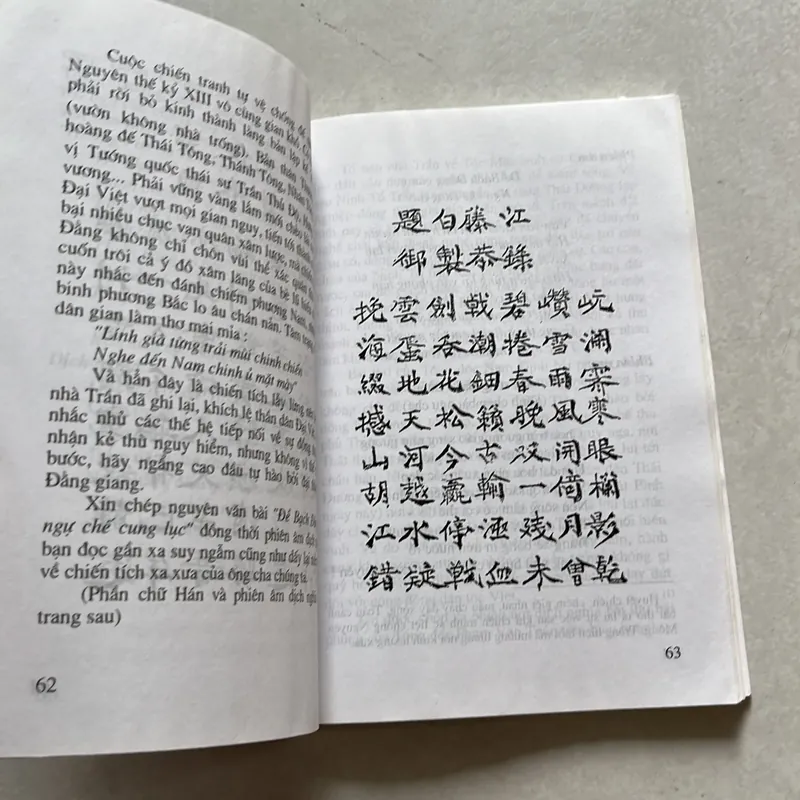 Cuộc chiến tranh tự vệ chống đế
Nguyên thế kỷ XIII vô cùng gian khổ.
phải rời bỏ kinh thành làng bản lập kế
(vườn không nhà trống). Bản thân
hoàng đế Thái Tông, Thánh Tông, Nhân
vị Tướng quốc thái sư Trần Thủ Độ,
vương... Phải vững vàng lắm mới chèo
Đại Việt vượt mọi gian nguy, tiến tới
bại nhiều chục vạn quân xâm lược, mà
Đằng không chỉ chôn vùi thể xác quân
cuốn trôi cả ý đồ xâm lăng của bè lũ
này nhắc đến đánh chiếm phương Nam,
binh phương Bắc lo âu chán nản.
dân gian làm thơ mai mỉa :
"Lính già từng trải mùi chinh chiến
Nghe đến Nam chinh ủ mặt mày"
Và hẳn đây là chiến tích lẫy lừng,
nhà Trần đã ghi lại, khích lệ thần dân Đại Việt
nhắc nhủ các thế hệ tiếp nối về sự
nhận kẻ thù nguy hiểm, nhưng không vì thế
bước, hãy ngẩng cao đầu tự hào bởi
Đằng giang.
Xin chép nguyên văn bài "Đề Bạch
ngự chế cung lục" đồng thời phiên âm dịch
bạn đọc gần xa suy ngẫm cũng như dấy lại
về chiến tích xa xưa của ông cha chúng ta.
(Phần chữ Hán và phiên âm dịch nghĩa
trang sau)
62
題白藤江
御製恭錄
挽雲劍戟碧巑岏
海蜃吞潮捲雪瀾
綴地花鈿春雨霽
撼天松籟晚風寒
山河今古双開眼
胡越贏輸一倚欄
江水停涵殘月影
錯疑戰血未曾乾
63